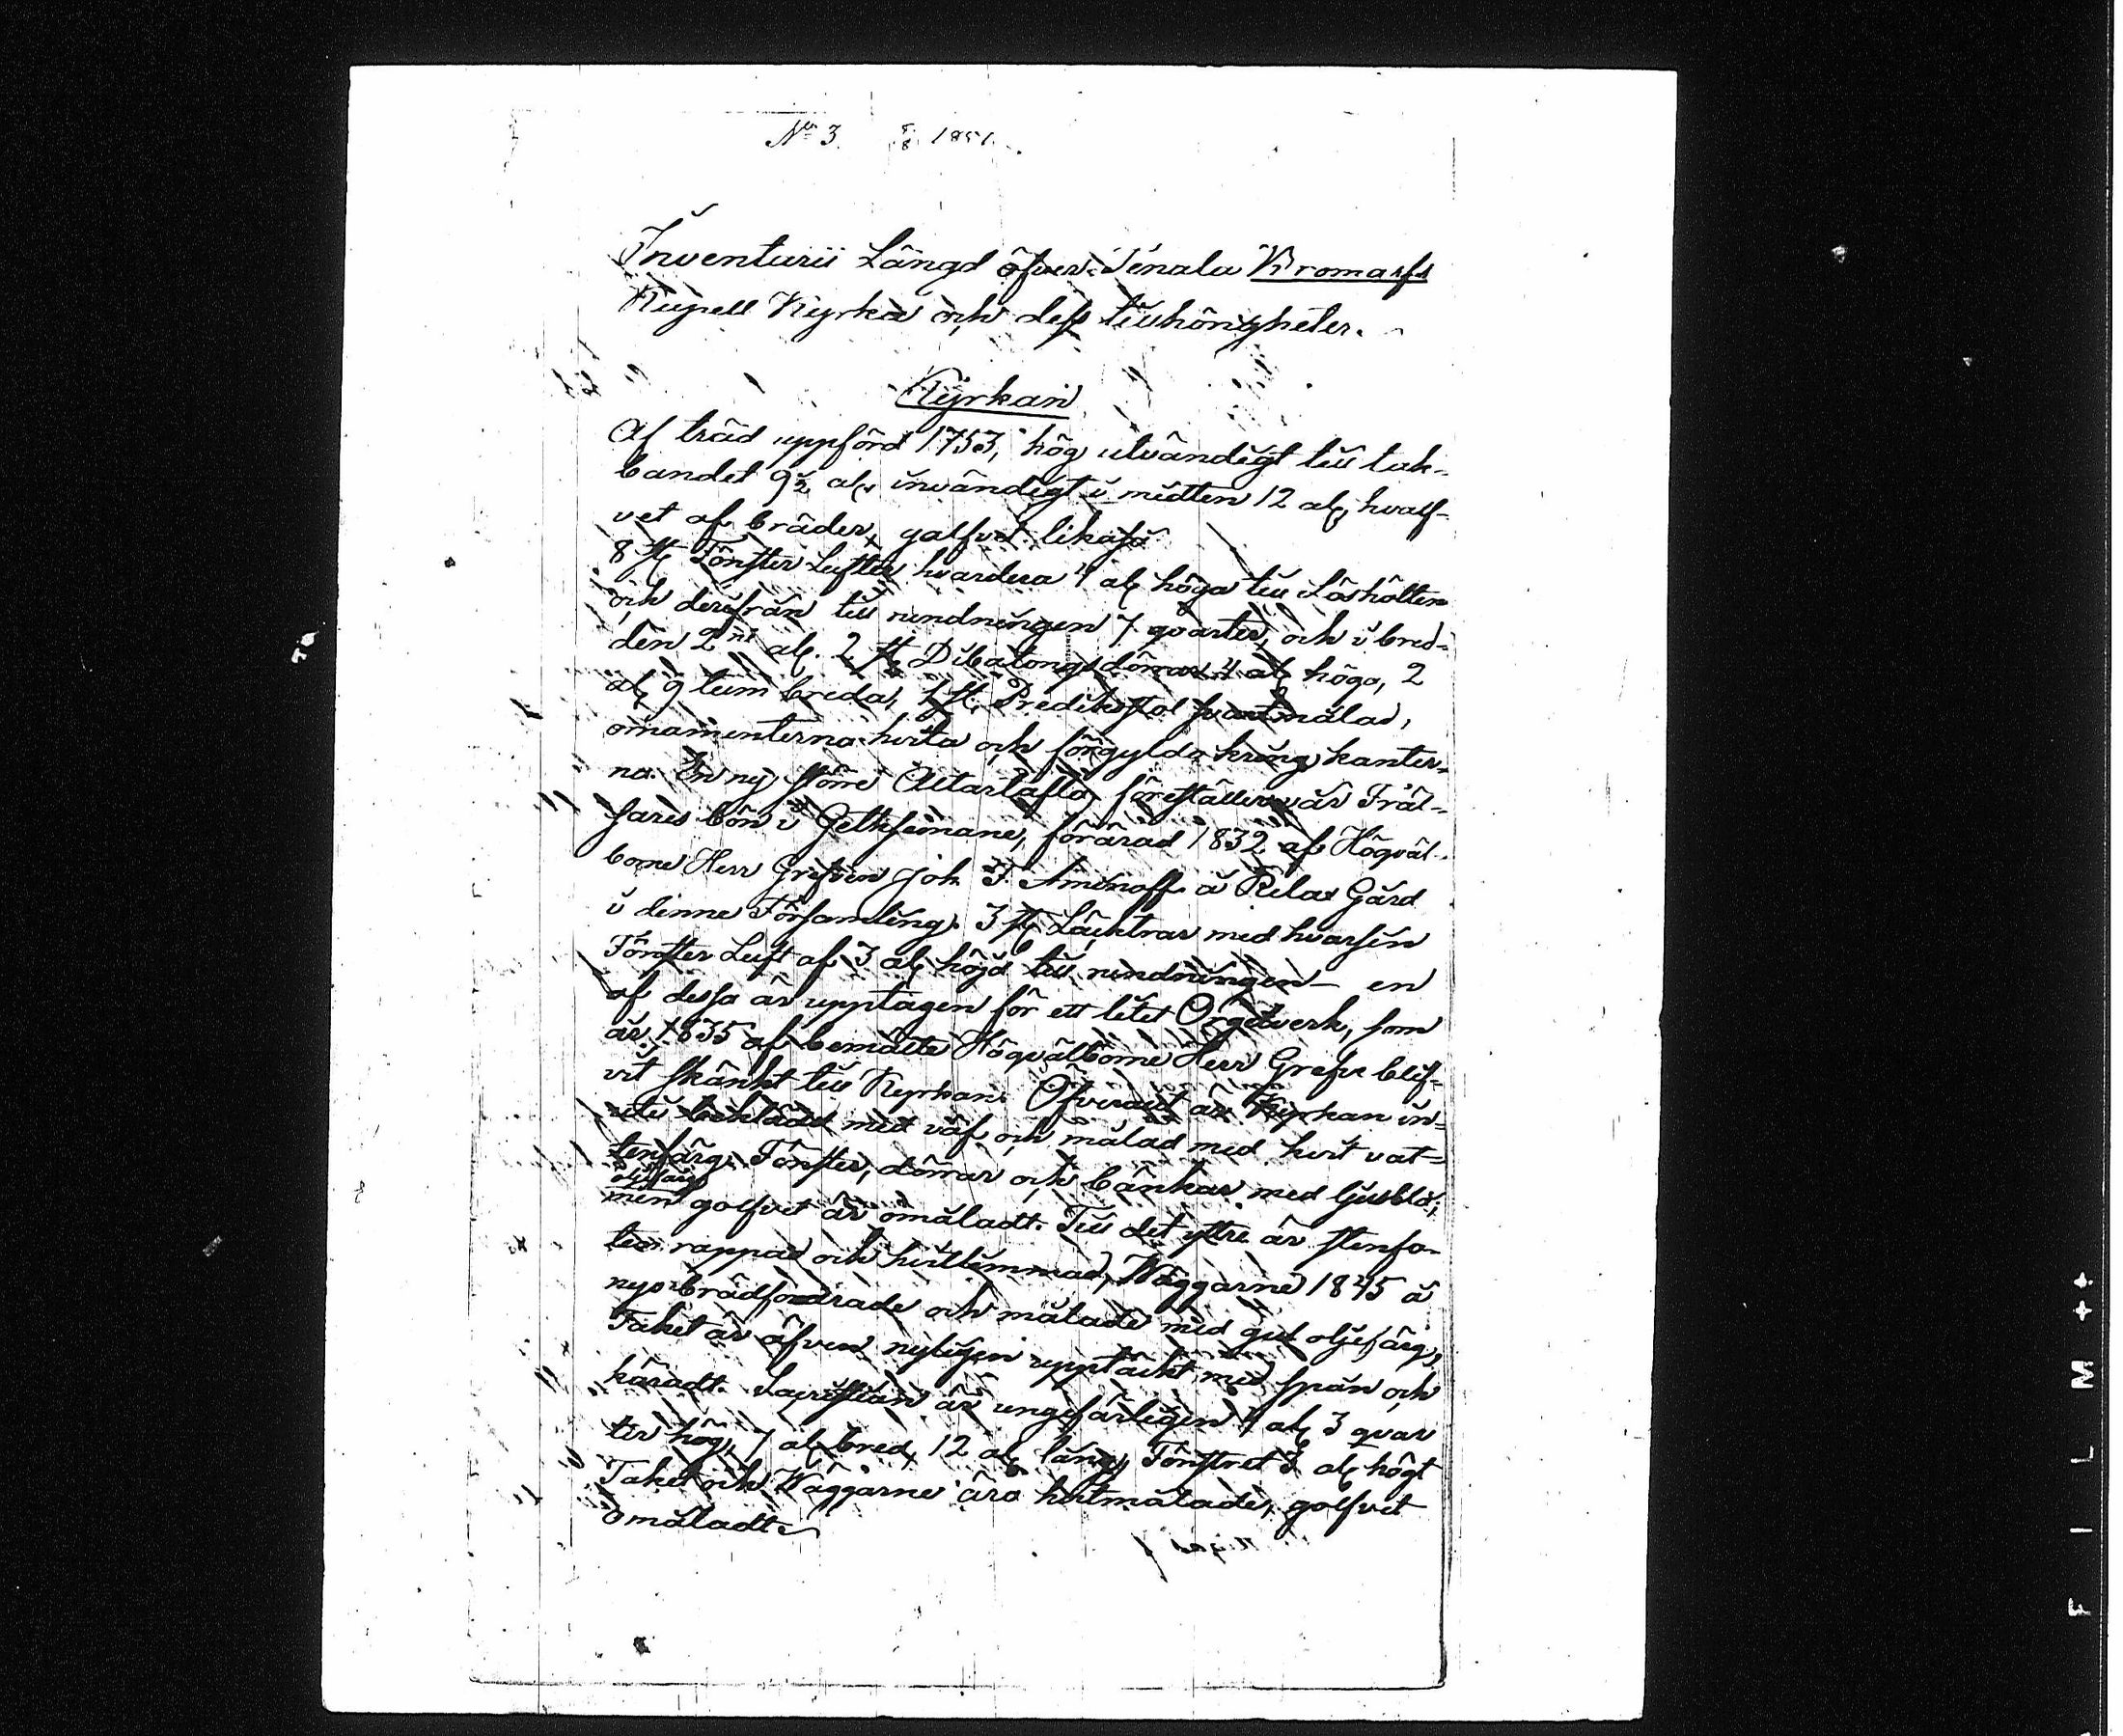 No 3. 8/8 1851.
Inventarii Längd öfver Tenala Bromarfs
Kapell Kyrka och dess tillhörigheter.
Kyrkan
Af träd uppförd 1753, hög utvändigt till tak-
bandet 9½ aln, invändigt i midten 12 aln, hvalf-
vet af bräder, golfvet likaså
8 st Fönster Lufter hvardera 4 aln höga till Låshölten
och derifrån till rundningen 7 qvarter, och i bred-
den 2 ni aln. 2 st dörrar 4 aln höga, 2
aln 9 tum breda, 1 st. Predikstol svartmålad,
ornamenterna hvita och förgylda kring kanter-
na. En ny större Altartafla föreställer vår Fräl-
sares bön i Gethsemane, förärad 1832 af Högväl-
borne Herr Grefven Joh. F. Aminoff å Rilax Gård
i denne Församling. 3 st Läcktrar med hvarsin
Fönster Luft af 3 aln höjd till rundningen – en
af dessa är upptagen för ett litet Orgelverk, som
år 1835 af bemälte Högvälborne Herr Grefve blif-
vit skänkt till Kyrkan. Öfveralt är Kyrkan in-
uti beklädd med väf och målad med hvit vat-
tenfärg. Fönster, dörrar och bänkar med ljusblå,
oljefärg
men golfvet är omåladt. Till det yttre är stenfo-
ten rappad och hvitlimmad, Wäggarne 1845 å
nyo brädfodrade och målade med gul oljefärg,
Taket är äfven nyligen upptäckt med spån och
käradt. Sacristian är ungefärligen 4 aln 3 qvar
ter hög, 7 aln bred, 12 aln lång, Fönstret 3 aln högt
Taket och Wäggarne äro hvitmålade, golfvet
omåladt.